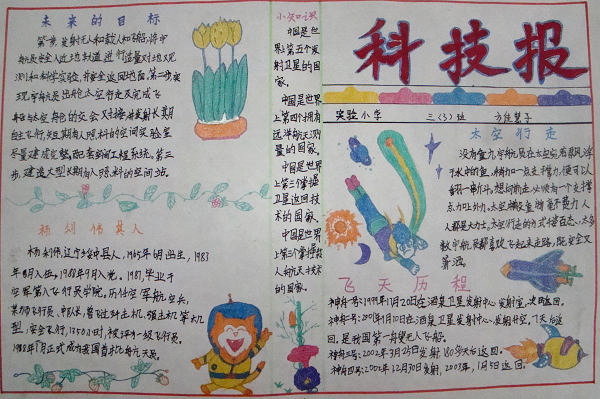 未来的目标
第一步发射无人和载人飞船,将宇
航员安全入近地轨道进行适量对地观
测和科学实验,并安全返回地面。第二步实
现宇航员出舱太空行走及完成飞
船与太空舱的交会对接并发射长期
自主飞行,短期有人照料的空间实验室
尽量建成完整配套的工程系统。第三
步,建造大型长期有人照料的空间站。
杨利伟其人
杨利伟,辽宁绥中县人,1965年6月出生,1983
年8月入伍。1988年9月入党。1987,毕业于
空军第八飞行员学院。历任空军航空兵
某师飞行员、中队长,曾飞过歼击机、强击机等机
型,安全飞行,1350小时,被评为一级飞行员。
1998年1月正式成为我国首批航天员。
小知识
中国是世
界上第五个发
射卫星的国
家。
中国是世界
上第四个拥有
远洋航天测
量的国家。
中国是世界
上第三个掌握
卫星返回技
术的国家。
中国是世界
上第三个掌握载
人航天技术
的国家。
科技报
实验小学
三(3)班
太空行走
没有重力,宇航员在太空宛若乘风,浮
于水中的鱼,稍加一点支撑力,便可以
翻一串斤斗。想向前走,必须有一个支撑
人都是大力士。太空行走的方式千姿百态。
飞天历程
神舟一号:1999年11月20日在酒泉卫星发射中心发射室,次日返回。
神舟二号:2001年1月10日在酒泉卫星发射中心发射升空。7天后返
回,是我国第一艘无人飞船。
神舟三号:2002年3月25日发射180多天后返回。
神舟四号:2002年12月30日发射,2003年,1月5返回。